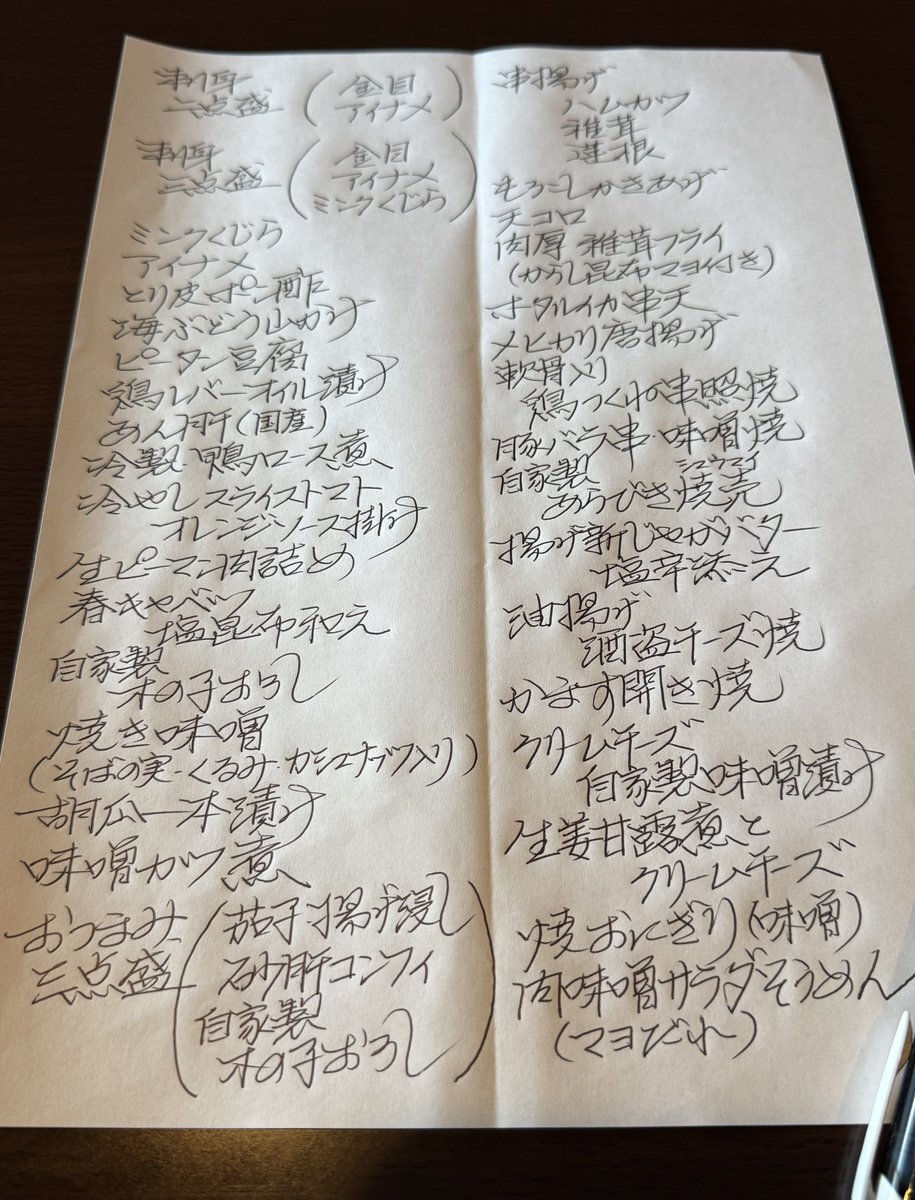 刺身
二点盛
(金目
アイナメ)
刺身
三点盛
(金目
アイナメ
ミンクくじら)
ミンクくじら
アイナメ
とり皮ポン酢
海ぶどう山かけ
ピータン豆腐
鶏レバーオイル漬け
あん肝(国産)
冷製・鴨ロース煮
冷やしスライストマト
オレンジソース掛け
生ピーマン肉詰め
春キャベツ
塩昆布和え
自家製
木の子おろし
焼き味噌
(そばの実・くるみ・カシュナッツ入り)
胡瓜一本漬け
味噌カツ煮
おつまみ
三点盛
(茄子揚げ浸し
砂肝コンフィ
自家製
木の子おろし)
串揚げ
ハムカツ
椎茸
蓮根
もろこしかきあげ
天コロ
肉厚椎茸フライ
(からし昆布マヨ付き)
ホタルイカ串天
メヒカリ唐揚げ
軟骨入り
鶏つくねの串照焼
豚バラ串・味噌焼
自家製
あらびき焼売
シュウマイ
揚げ新じゃがバター
塩辛添え
油揚げ
酒盗チーズ焼
かます開き焼
クリームチーズ
自家製味噌漬け
生姜甘露煮と
クリームチーズ
焼おにぎり(味噌)
肉味噌サラダそうめん
(マヨだれ)